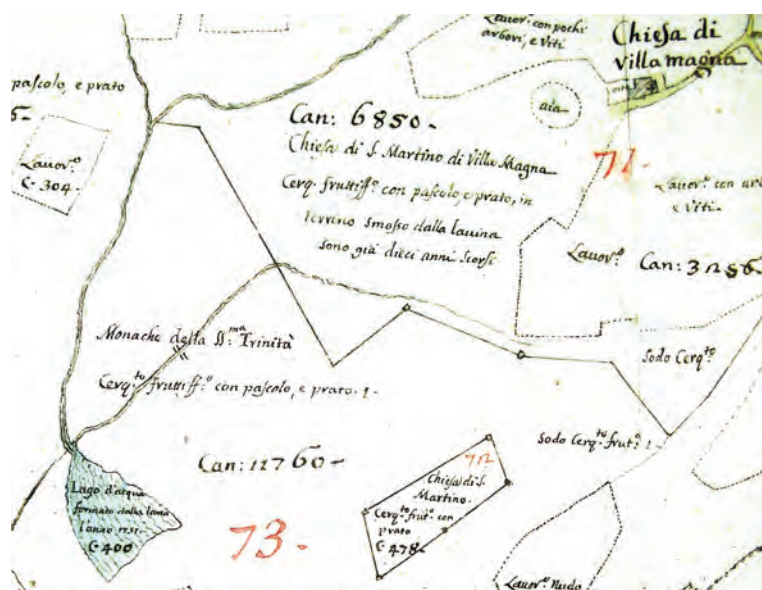 Lavor.º con pochi
arbori, e Viti
Chiesa di
Villamagna
pascolo, e prato
aia
Can: 6850-
Chiesa di S. Martino di Villa Magna
Cerq. fruttiff.º con pascolo, e prato, in
terrino smosso dalla lavina
sono già dieci anni scorsi
71.
Lavor.º
C. 304.
Lavor.º con arb
e Viti.
Lavor.º Can: 3286
Monache della SS:ma Trinità
Cerq.to fruttiff.º con pascolo, e prato.
Sodo Cerq.to
Sodo Cerq.to frut.º
Can: 11760-
72
Chiesa di S.
Martino.
Cerq.to frut.º con
prato
C. 478-
Lago d'acqua
formato dalla
C. 400
73-
Lavor.º Nudo